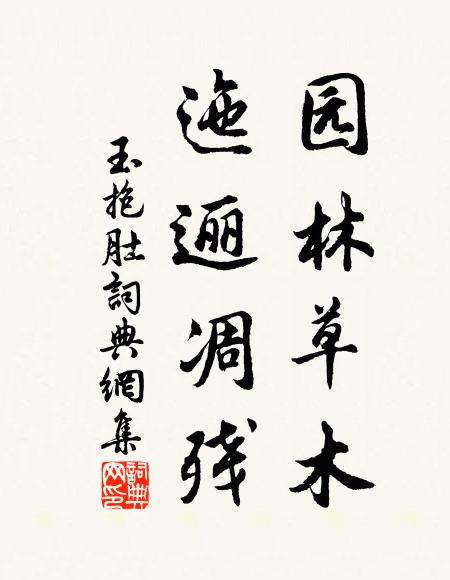 园林草木
迤逦凋残
玉抱肚詞典網集
詞典
网印